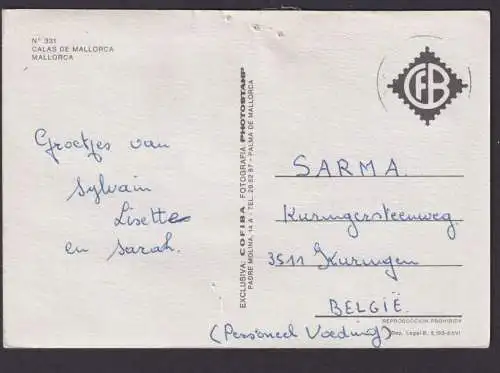 Nº 331
CALAS DE MALLORCA
MALLORCA
Groetjes van
Sylvain
Lisette
en Sarah.
EXCLUSIVA: COFIBA FOTOGRAFIA PHOTOSTAMP
PADRE MOLINA, 14 A - TEL. 28 52 87 - PALMA DE MALLORCA
CFB
SARMA.
Kuringersteenweg.
3511 Kuringen
BELGIË.
REPRODUCCION PROHIBIDA
(Personeel Voeding)
Dep. Legal B.